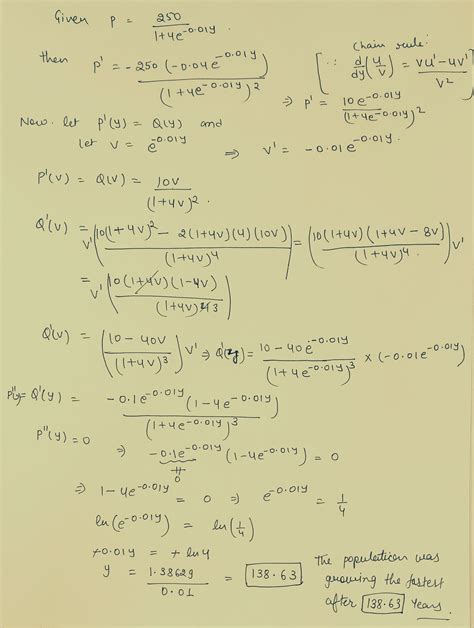 Given P = 250 / (1+4e^(-0.01y)) .
then P' = -250(-0.04e^(-0.01y)) / (1+4e^(-0.01y))^2
[∵ Chain rule: d/dy(u/v) = (vu'-uv') / v^2 ]
⇒ P' = 10e^(-0.01y) / (1+4e^(-0.01y))^2
Now. let P'(y) = Q(y) and
let v = e^(-0.01y) ⇒ v' = -0.01e^(-0.01y).
P'(v) = Q(v) = 10v / (1+4v)^2 .
Q'(v) = v'( (10(1+4v)^2 - 2(1+4v)(4)(10v)) / (1+4v)^4 ) = ( 10(1+4v)(1+4v-8v) / (1+4v)^4 ) v'
= v'( 10(1+4v)(1-4v) / (1+4v)^43 )
Q'(v) = ( (10-40v) / (1+4v)^3 ) v' ⇒ Q'(y) = (10-40e^(-0.01y)) / (1+4e^(-0.01y))^3 × (-0.01e^(-0.01y))
P''(y) = Q'(y) = -0.1e^(-0.01y) (1-4e^(-0.01y)) / (1+4e^(-0.01y))^3
P''(y) = 0
⇒ -0.1e^(-0.01y) (1-4e^(-0.01y)) = 0
≠ 0
⇒ 1-4e^(-0.01y) = 0 ⇒ e^(-0.01y) = 1/4
ln(e^(-0.01y)) = ln(1/4)
+0.01y = + ln 4
y = 1.38629 / 0.01 = 138.63
The population was
growing the fastest
after 138.63 years.